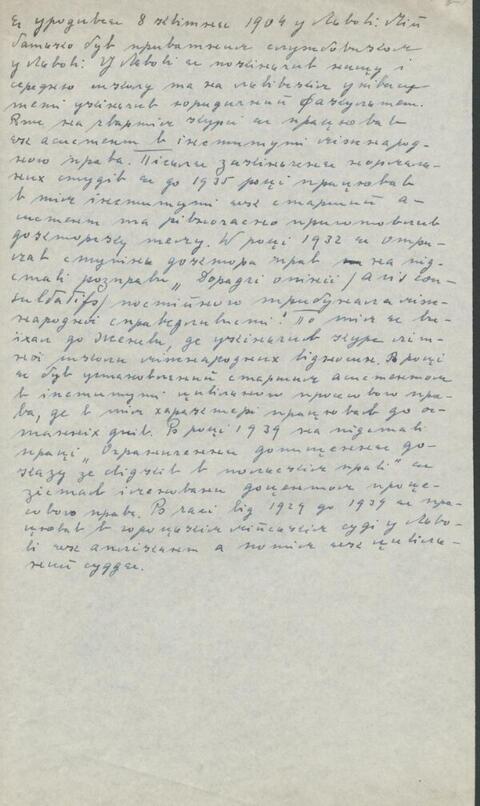 Я уродився 8 квітня 1904 у Львові. Мій
батько був приватним службовиком
у Львові. У Львові я покінчив нищу і
середню школу та на львівськім універси-
теті укінчив юридичний факультет.
Вже на четвертім курсі я працював
як асистент в інституті міжнарод-
ного права. Після закінчення нормаль-
них студій я до 1935 році працював
в тім інституті як старший а-
систент та рівночасно приготовляв
докторську тезу. В році 1932 я отри-
мав ступінь доктора прав на під-
ставі розправи „Дорадчі опінії /Avis con-
sultatifs/ постійного трибунала між-
народної справедливості". По тім я ви-
їхав до Женеви, де укінчив курс літ-
ної школи міжнародних відносин. В році
я був установлений старшим асистентом
в інституті цивільного процесового пра-
ва, де в тім характері працював до о-
станніх днів. В році 1939 на підставі
праці „Ограничення допущення до-
казу зе свідків в польськім праві" я
зістав іменований доцентом проце-
сового права. В часі від 1929 до 1939 я пра-
цював в городськім судi у Льво-
ві як аплікант а потім як цивіль-
ний суддя.